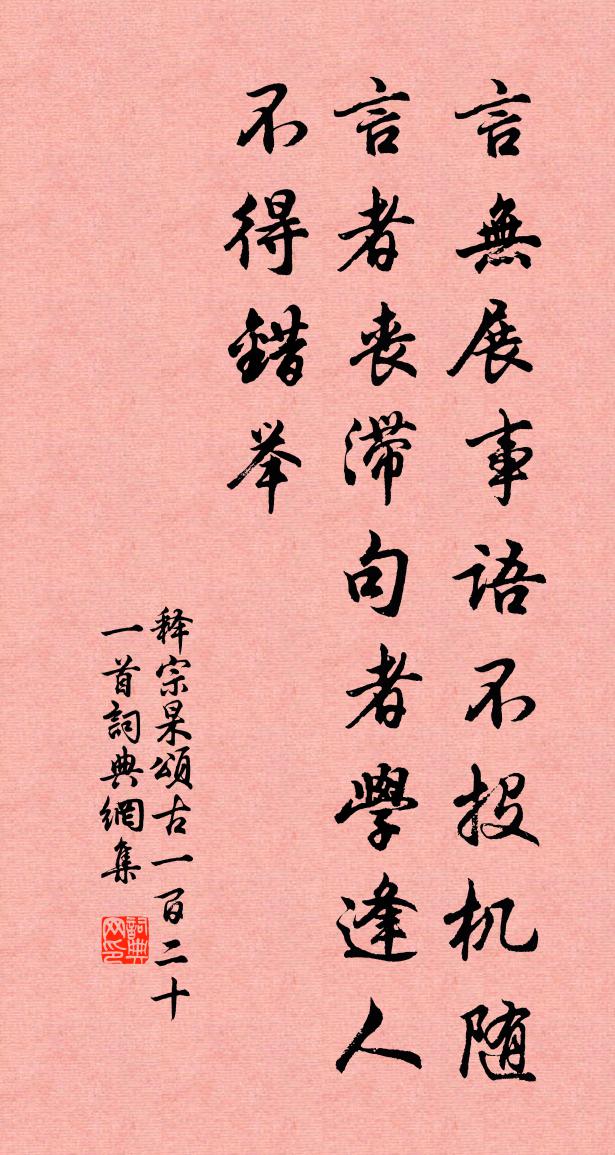 言無展事語不投机随
言者丧滞句者學逢人
不得錯举
释宗杲頌古一百二十
一首詞典網集
詞典
网印